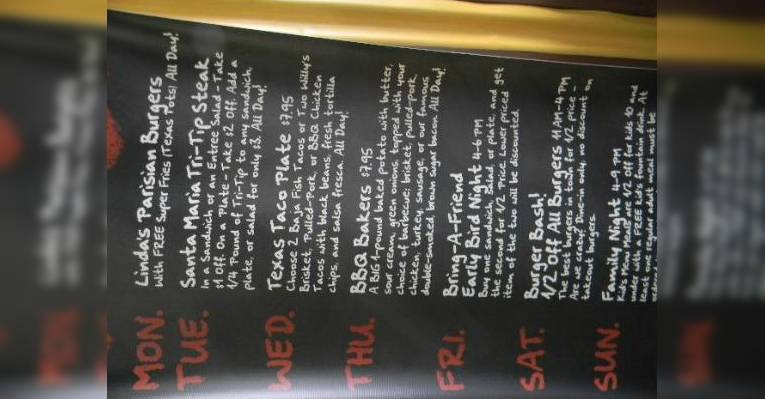 MON.
Linda's Parisian Burgers
With FREE Super Fries (Texas Pots) All Day!
TUE.
Santa Maria Tri-Tip Steak
In a Sandwich or an Entree Salad - Take
$1 Off. On a Plate - Take $2 Off. Add a
1/4 Pound of Tri-Tip to any sandwich,
plate, or salad for only $3. All Day!
WED.
Texas Taco Plate $7.95
Choose 2 Baja Fish Tacos or Two Willy's
Brisket, Pulled-Pork, or BBQ Chicken
Tacos with black beans, fresh tortilla
chips, and salsa fresca. All Day!
THU.
BBQ Bakers $7.95
A BIG 1-pound baked potato with butter,
sour cream, green onions, topped with your
choice of barbecue: brisket, pulled-pork,
chicken, turkey, sausage, or our famous
double-smoked brown sugar bacon. All Day!
FRI.
Bring-A-Friend
Early Bird Night 4-6 PM
Buy one sandwich, salad or plate, and get
the second for 1/2 Price. Lower priced
item of the two will be discounted.
SAT.
Burger Bash!
1/2 Off All Burgers 11 AM-4 PM
The best burgers in town for 1/2 price -
Are we crazy? Dine-in only, no discount on
takeout burgers.
SUN.
Family Night 4-9 PM
Kid's Menu Meals are 1/2 Off for kids 10 and
under with a FREE kid's fountain drink. At
least one regular adult meal must be